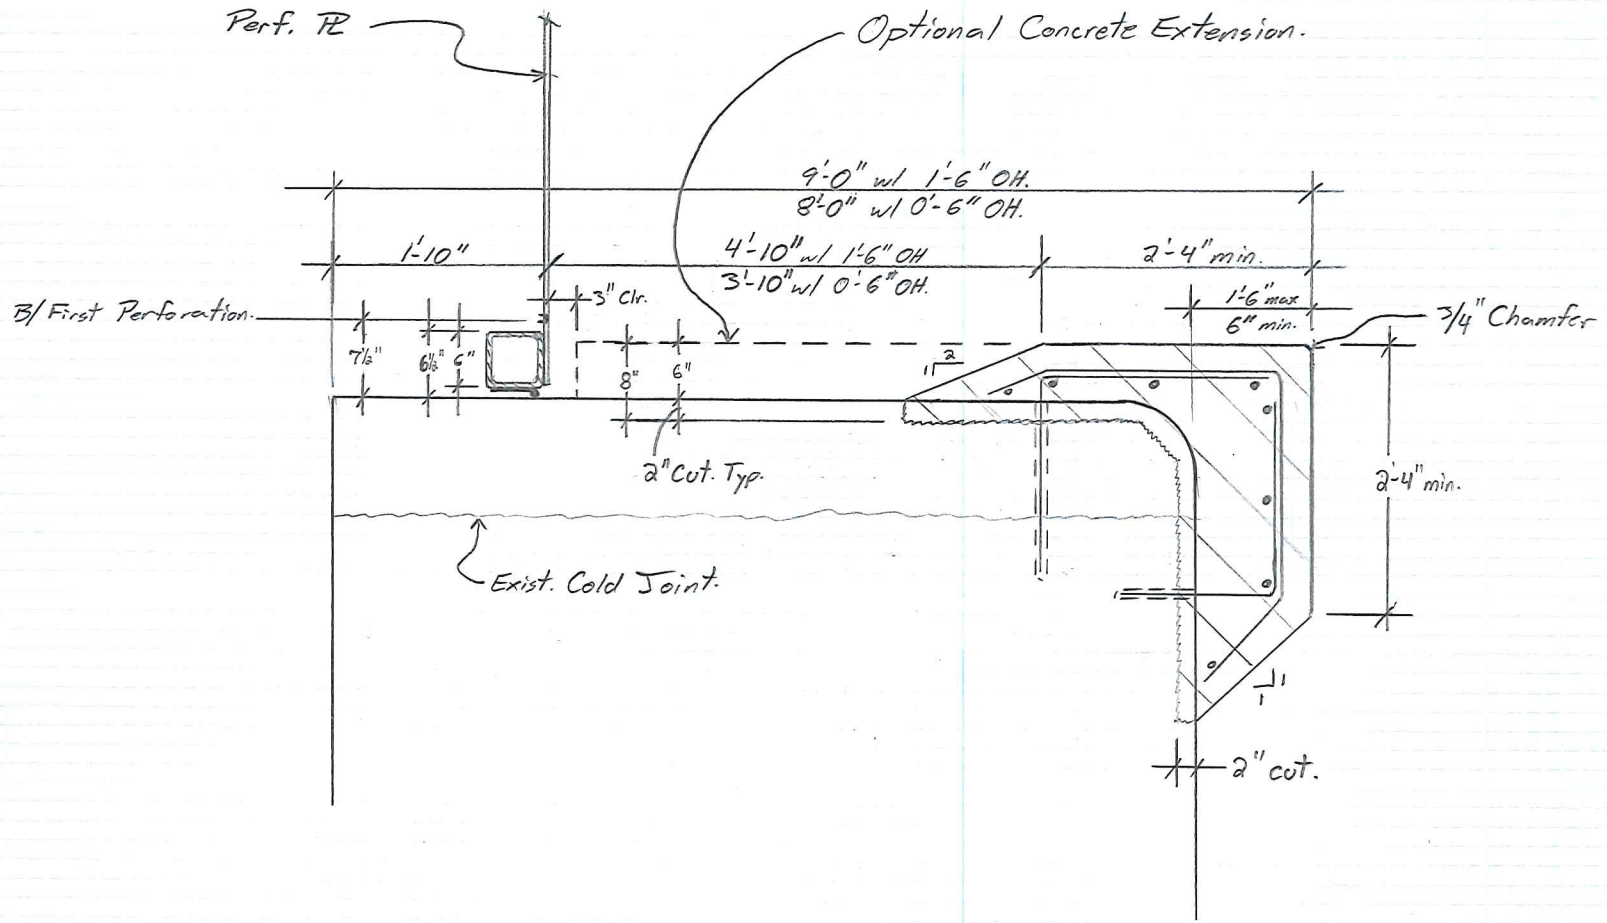 Perf. PL
Optional Concrete Extension.
9'-0" w/ 1'-6" OH.
8'-0" w/ 0'-6" OH.
1'-10"
4'-10" w/ 1'-6" OH
3'-10" w/ 0'-6" OH.
2'-4" min.
B/ First Perforation.
3" Clr.
1'-6" max
6" min.
3/4" Chamfer
7½"
6½"
6"
8"
6"
1
2
2" Cut. Typ.
2'-4" min.
Exist. Cold Joint.
1
1
2" cut.